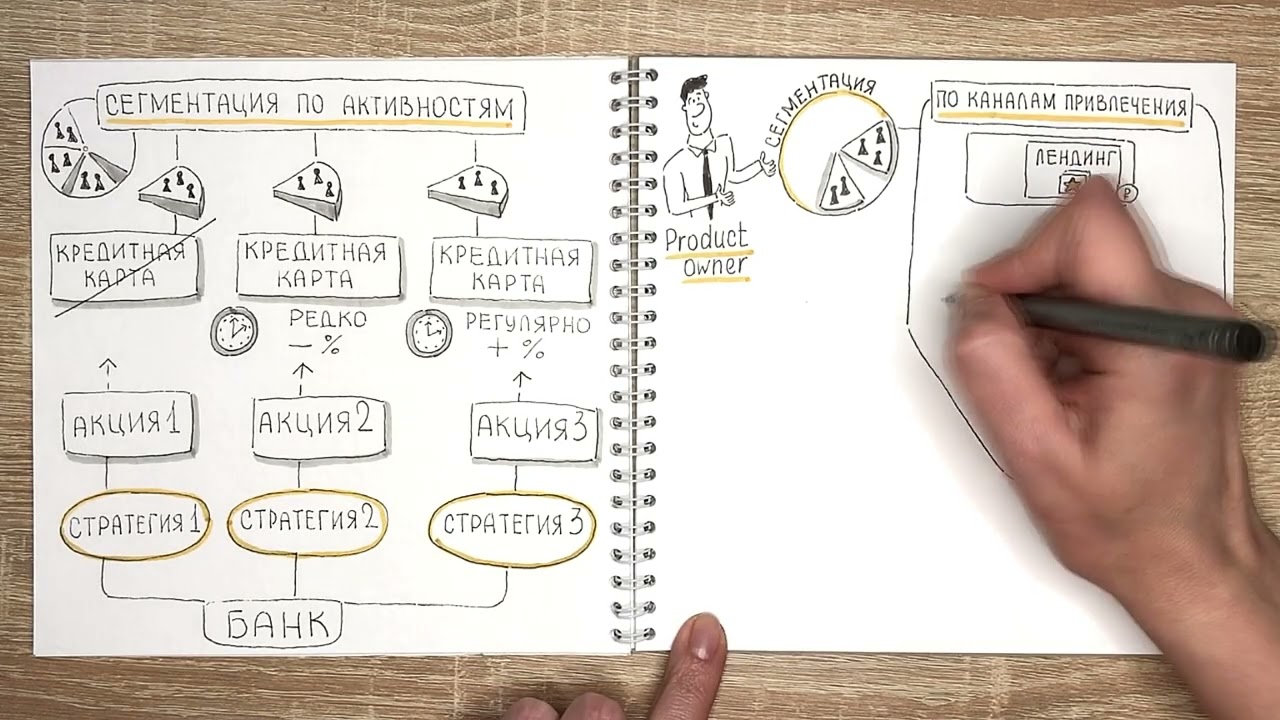 СЕГМЕНТАЦИЯ ПО АКТИВНОСТЯМ
КРЕДИТНАЯ
КАРТА
КРЕДИТНАЯ
КАРТА
КРЕДИТНАЯ
КАРТА
РЕДКО
- %
РЕГУЛЯРНО
+ %
АКЦИЯ 1
АКЦИЯ 2
АКЦИЯ 3
СТРАТЕГИЯ 1
СТРАТЕГИЯ 2
СТРАТЕГИЯ 3
БАНК
Product
owner
СЕГМЕНТАЦИЯ
ПО КАНАЛАМ ПРИВЛЕЧЕНИЯ
ЛЕНДИНГ
₽